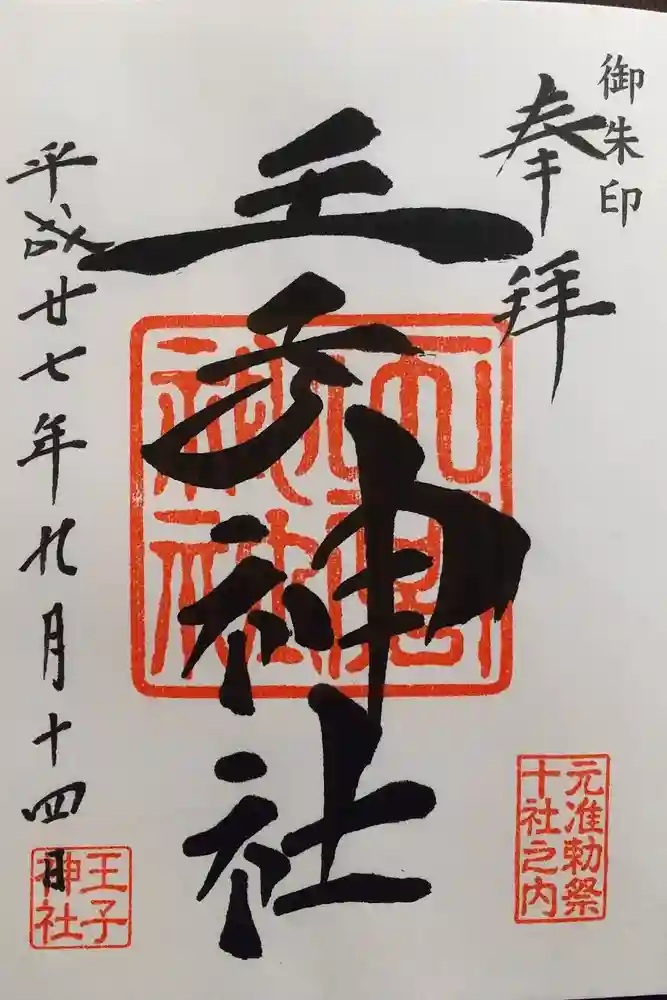 御朱印
奉拝
王子神社
元准勅祭
十社之内
平成廿七年九月十四日
王子
神社